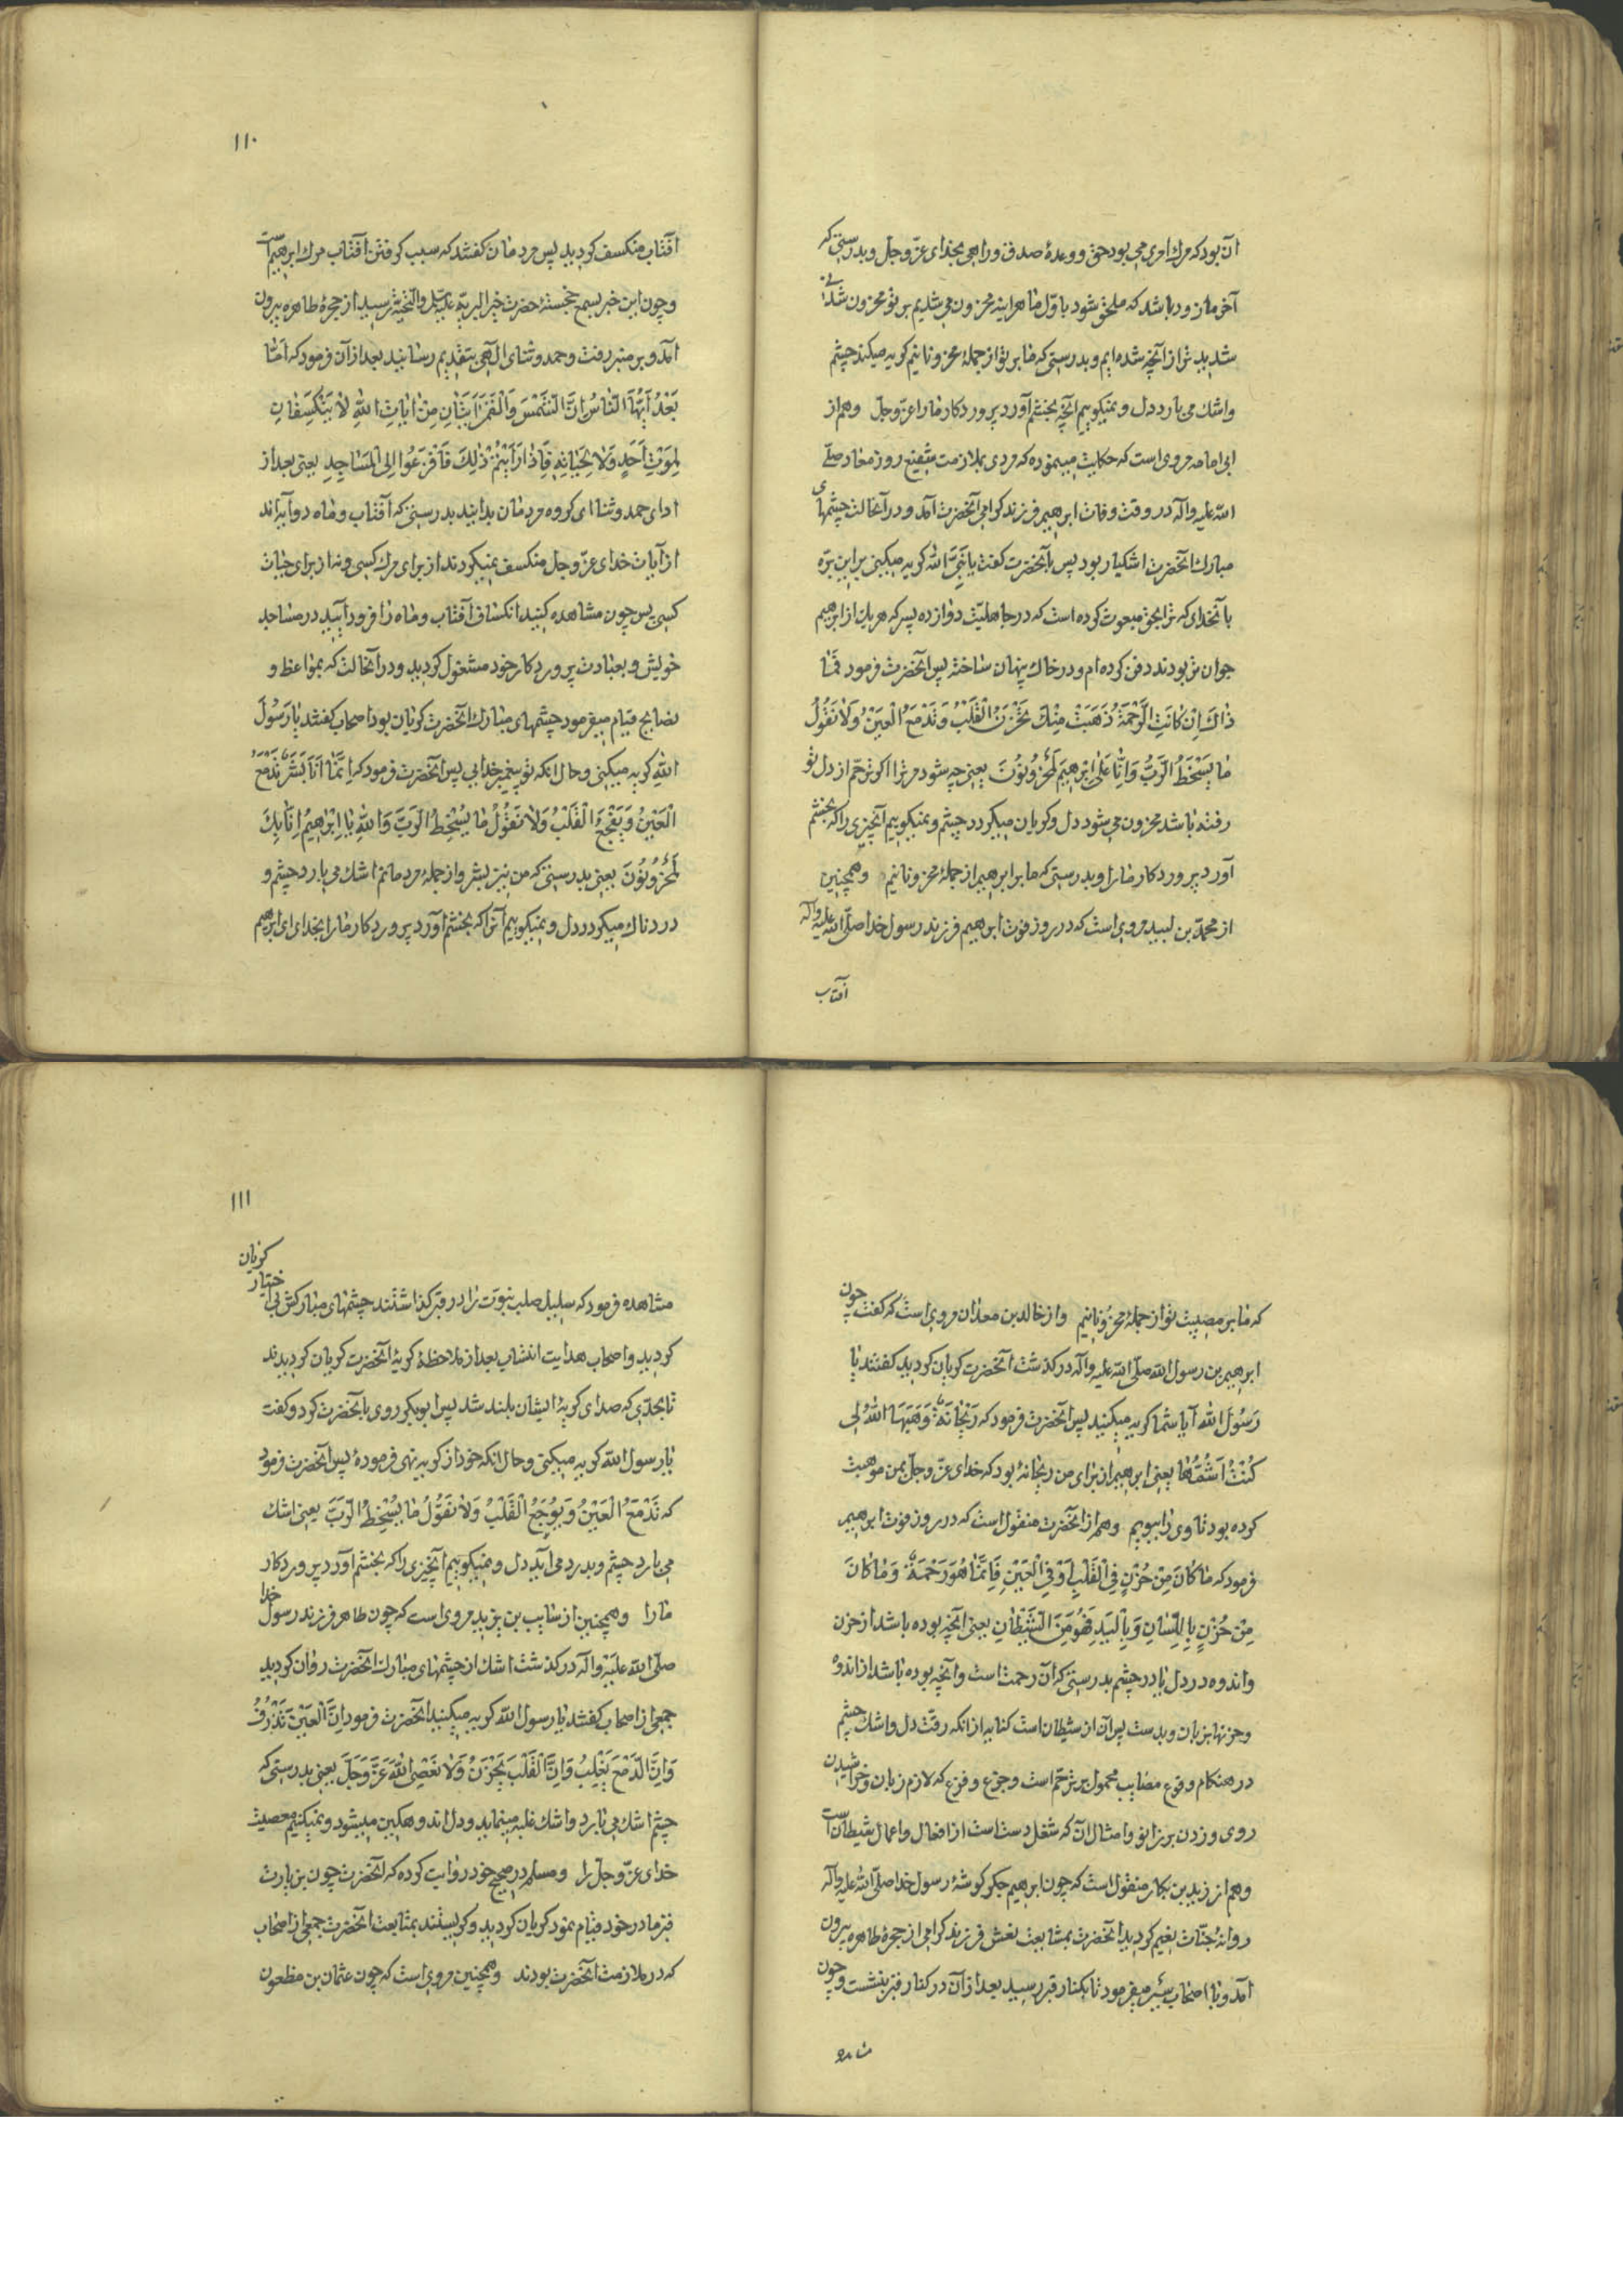 آن بود که مرک امری می بود حق و وعدهٔ صدق و راهی بخدای عزّ و جل و بدرستی که
آخر ما زود باشد که ملحق شود باوّل ما هراینه محزون می شدیم بر تو محزون شدنی
شدید تر از آنچه شده ایم و بدرستی که ما بر تو از جملهٔ محزونانیم کریه میکند چشم
و اشک می بارد دل و نمیکوییم آنچه بخشم آورد پروردکار ما را عزّ و جلّ و هم از
ابی امامه مروی است که حکایت مینموده که مردی بملازمت شفیع روز معاد صلّی
الله علیه و آله در وقت وفات ابرهیم فرزند کرامی آنحضرت آمد و در آنحالت چشمهای
مبارک آنحضرت اشکبار بود پس بآنحضرت کفت یا نَبِیَّ الله کریه میکنی بر این برّه
بآنخدای که ترا بحق مبعوث کرده است که در جاهلیّت دوازده پسر که هر یک از ابرهیم
جوان تر بودند دفن کرده ام و در خاک پنهان ساخته پس آنحضرت فرمود فَمَا
ذَاكَ اِنْ كَانَتِ الرَّحْمَةُ ذَهَبَتْ مِنْكَ يَحْزَنُ الْقَلْبُ وَتَدْمَعُ الْعَيْنُ وَلَا نَقُولُ
مَا يُسْخِطُ الرَّبَّ وَاِنَّا عَلَى اِبْرٰهِيمَ لَمَحْزُونُونَ یعنی چه شود مر ترا اکر ترحّم از دل تو
رفته باشد محزون می شود دل و کریان میکردد چشم و نمیکوییم آنچیزی را که بخشم
آورد پروردکار ما را و بدرستی که ما بر ابرهیم از جملهٔ محزونانیم و همچنین
از محمّد بن لبید مروی است که در روز فوت ابرهیم فرزند رسول خدا صلّی الله علیه و آله
آفتاب
۱۱۰
آفتاب منکسف کردید پس مردمان کفتند که سبب کرفتن آفتاب مرک ابرهیم است
و چون این خبر بسمع خجستهٔ حضرت خیر البریّه علیه السّلم و التّحیّة رسید از حجرهٔ طاهره بیرون
آمد و بر منبر رفت و حمد و ثنای الهی بتقدیم رسانید بعد از آن فرمود که اَمَّا
بَعْدُ اَيُّهَا النَّاسُ اِنَّ الشَّمْسَ وَالْقَمَرَ اٰيَتَانِ مِنْ اٰيَاتِ اللهِ لَا يَنْكَسِفَانِ
لِمَوْتِ اَحَدٍ وَلَا لِحَيَاتِهِ فَاِذَا رَاَيْتُمْ ذٰلِكَ فَافْزَعُوا اِلَى الْمَسَاجِدِ یعنی بعد از
ادای حمد و ثنا ای کروه مردمان بدانید بدرستی که آفتاب و ماه دو آیه اند
از آیات خدای عزّ و جل منکسف نمیکردند از برای مرک کسی و نه از برای حیات
کسی پس چون مشاهده کنید انکساف آفتاب و ماه را فرود آیید در مساجد
خویش و بعبادت پروردکار خود مشغول کردید و در آنحالت که بمواعظ و
نصایح قیام میفرمود چشمهای مبارک آنحضرت کریان بود اصحاب کفتند یا رَسُولَ
اللهِ کریه میکنی و حال آنکه تو پیغمبر خدایی پس آنحضرت فرمود که اِنَّمَا اَنَا بَشَرٌ تَدْمَعُ
الْعَيْنُ وَيَفْجَعُ الْقَلْبُ وَلَا نَقُولُ مَا يُسْخِطُ الرَّبَّ وَاللهِ يَا اِبْرٰهِيمُ اِنَّا بِكَ
لَمَحْزُونُونَ یعنی بدرستی که من نیز بشر و از جملهٔ مردمانم اشک می بارد چشم و
دردناک میکردد دل و نمیکوییم آنرا که بخشم آورد پروردکار ما را بخدای ای ابرهیم
که ما بر مصیبت تو از جملهٔ محزونانیم و از خالد بن معدان مروی است که کفت چون
ابرهیم بن رسول الله صلّی الله علیه و آله درکذشت آنحضرت کریان کردید کفتند یا
رَسُولَ الله آیا شما کریه میکنید پس آنحضرت فرمود که رَيْحَانَةٌ وَهَبَهَا اللهُ لِی
كُنْتُ اَشُمُّهَا یعنی ابرهیم از برای من ریحانهٔ بود که خدای عزّ و جلّ بمن موهبت
کرده بود تا وی را ببویم و هم از آنحضرت منقول است که در روز فوت ابرهیم
فرمود که مَا كَانَ مِنْ حُزْنٍ فِي الْقَلْبِ اَوْ فِي الْعَيْنِ فَاِنَّمَا هُوَ رَحْمَةٌ وَمَا كَانَ
مِنْ حُزْنٍ بِاللِّسَانِ وَبِالْيَدِ فَهُوَ مِنَ الشَّيْطَانِ یعنی آنچه بوده باشد از حزن
و اندوه در دل یا در چشم بدرستی که آن رحمت است و آنچه بوده باشد از اندوه
و حزنها بزبان و بدست پس آن از شیطان است کنایه از آنکه رقّت دل و اشک چشم
در هنکام وقوع مصایب محمول بر ترحّم است و جزع و فزع که لازم زبان و خراشیدن
روی و زدن بر زانو و امثال آن که شغل دست است از افعال و اعمال شیطان است
و هم از زید بن بکار منقول است که چون ابرهیم جکر کوشهٔ رسول خدا صلّی الله علیه و آله
روانهٔ جنّات نعیم کردید آنحضرت بمشایعت نعش فرزند کرامی از حجرهٔ طاهره بیرون
آمد و با اصحاب سیر میفرمود تا بکنار قبر رسید بعد از آن در کنار قبر بنشست و چون
۱۱۱
مشاهده فرمود که سلیل صلب نبوّت را در قبر کذاشتند چشمهای مبارکش بی اختیار کریان
کردید و اصحاب هدایت انتساب بعد از ملاحظهٔ کریهٔ آنحضرت کریان کردیدند
تا بحدّی که صدای کریهٔ ایشان بلند شد پس ابوبکر روی بآنحضرت کرد و کفت
یا رسول الله کریه میکنی و حال آنکه خود از کریه نهی فرمودهٔ پس آنحضرت فرمود
که تَدْمَعُ الْعَيْنُ وَيُوجَعُ الْقَلْبُ وَلَا نَقُولُ مَا يُسْخِطُ الرَّبَّ یعنی اشک
می بارد چشم و بدرد می آید دل و نمیکوییم آنچیزی را که بخشم آورد پروردکار
ما را و همچنین از سایب بن یزید مروی است که چون طاهر فرزند رسول خدا
صلّی الله علیه و آله درکذشت اشک از چشمهای مبارک آنحضرت روان کردید
جمعی از اصحاب کفتند یا رسول الله کریه میکنید آنحضرت فرمود اِنَّ الْعَيْنَ تَذْرِفُ
وَاِنَّ الدَّمْعَ يَغْلِبُ وَاِنَّ الْقَلْبَ يَحْزَنُ وَلَا نَعْصِي اللهَ عَزَّ وَجَلَّ یعنی بدرستی که
چشم اشک می بارد و اشک غلبه مینماید و دل اندوهکین میشود و نمیکنیم معصیت
خدای عزّ و جلّ را و مسلم در صحیح خود روایت کرده که آنحضرت چون بزیارت
قبر مادر خود قیام نمود کریان کردید و کریستند بمتابعت آنحضرت جمعی از اصحاب
که در ملازمت آنحضرت بودند و همچنین مروی است که چون عثمان بن مظعون